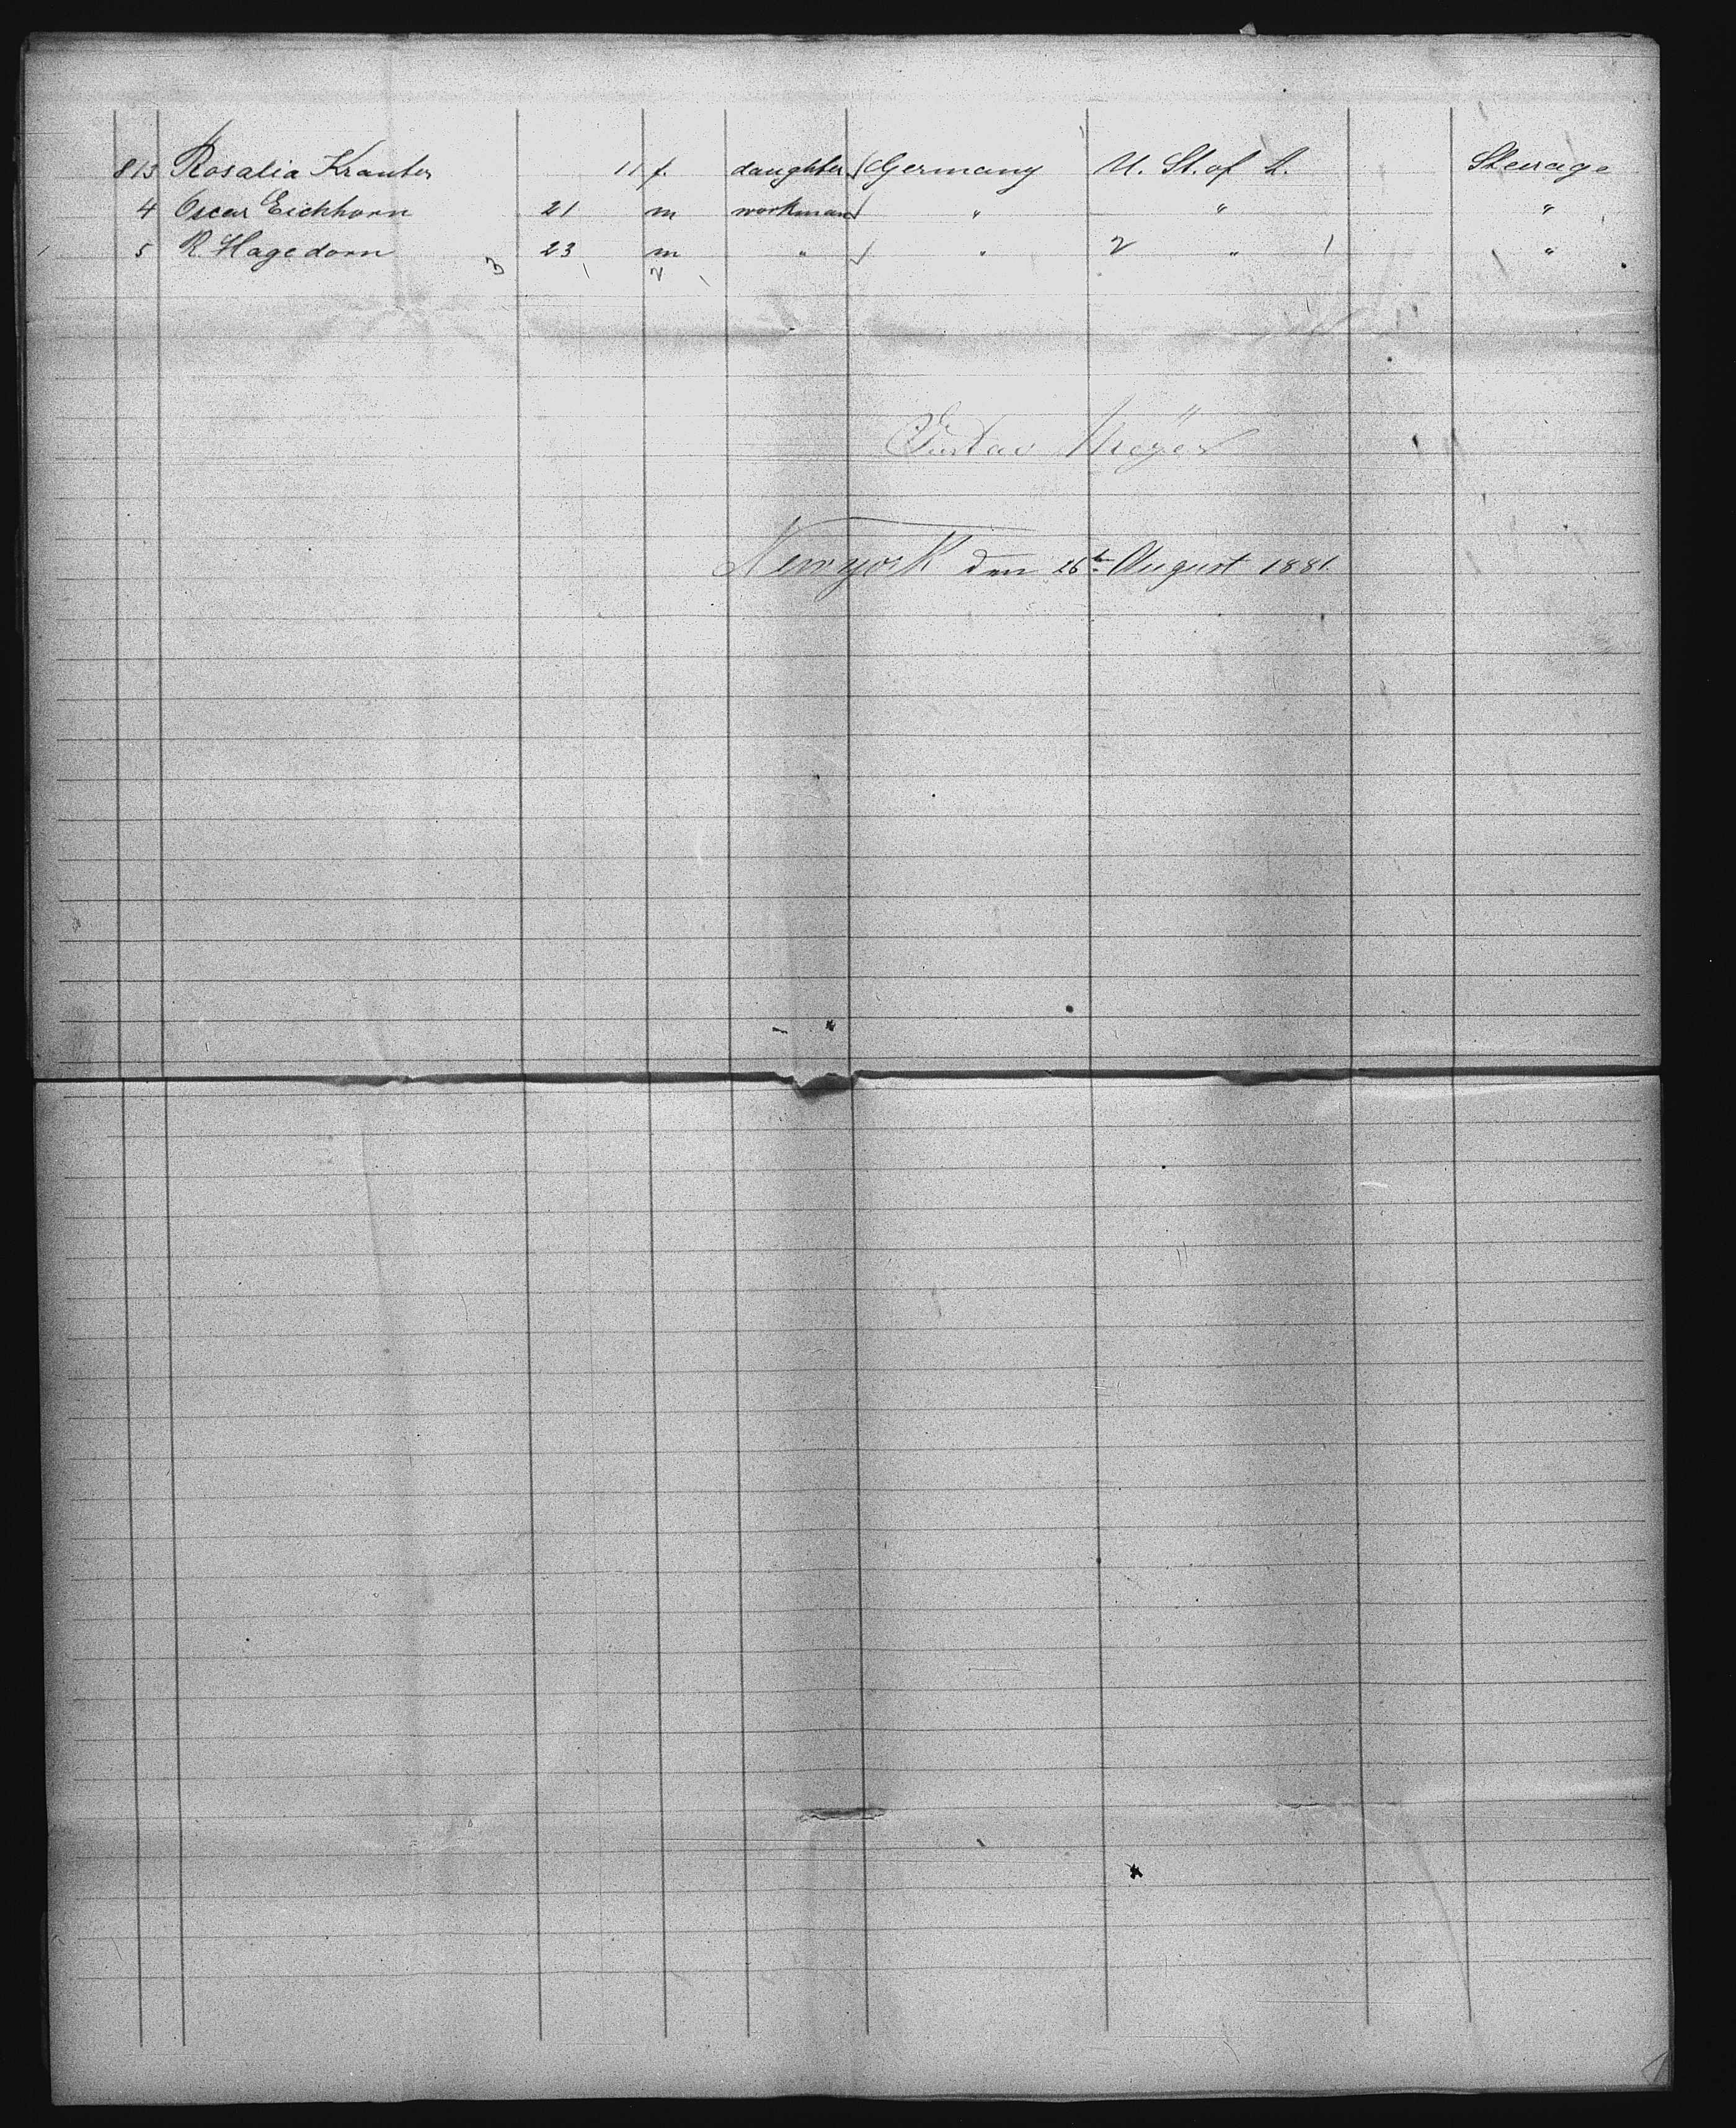 813 Rosalia Krauter 11 f. daughter Germany U. St. of A. Steerage
4 Oscar Eichhorn 21 m workman " " "
5 R. Hagedorn 23 m " " 2 " 1 "
3 1 2 1
Gustav Meyer
Newyork den 26t August 1881.